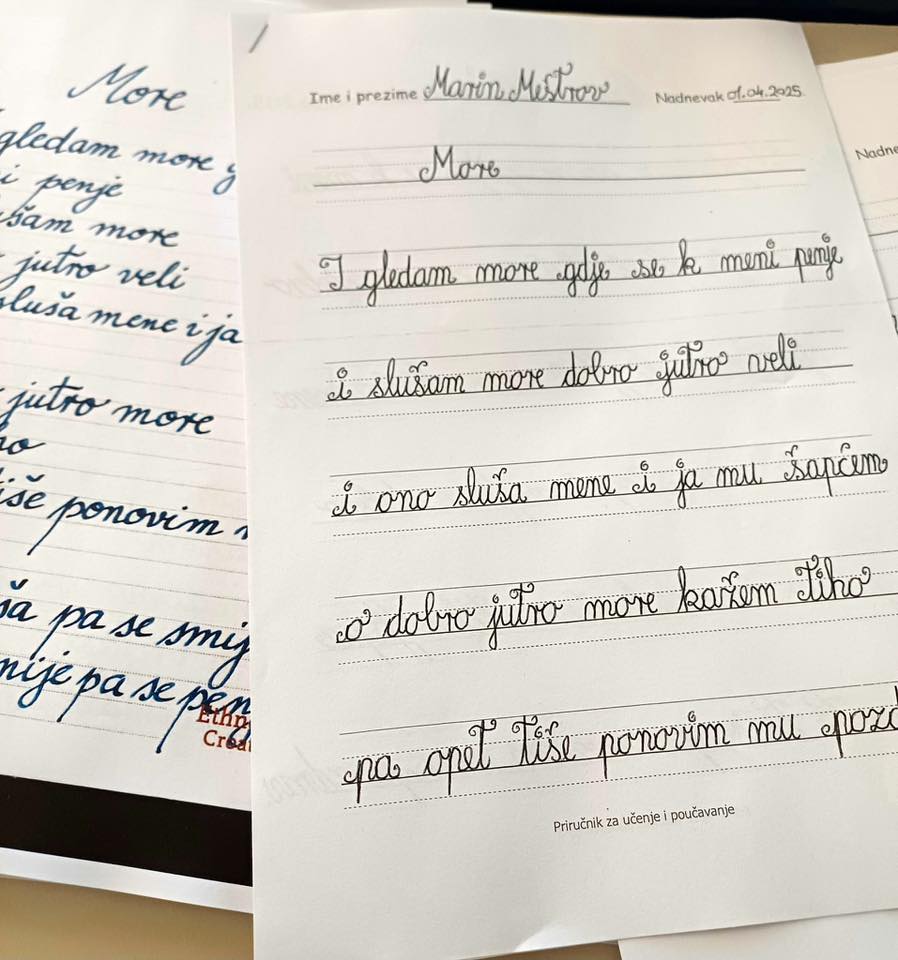 More
gledam more
i penje
šam more
jutro veli
sluša mene i ja
jutro more
ho
iše ponovim
ša pa se smij
mije pa se penj
Ethn
Crea
Ime i prezime Marin Meštrov Nadnevak 01.04.2025.
More
I gledam more gdje se k meni penje
i slušam more dobro jutro veli
i ono sluša mene i ja mu šapćem
o dobro jutro more kažem tiho
pa opet tiše ponovim mu pozd
Priručnik za učenje i poučavanje
Nadne